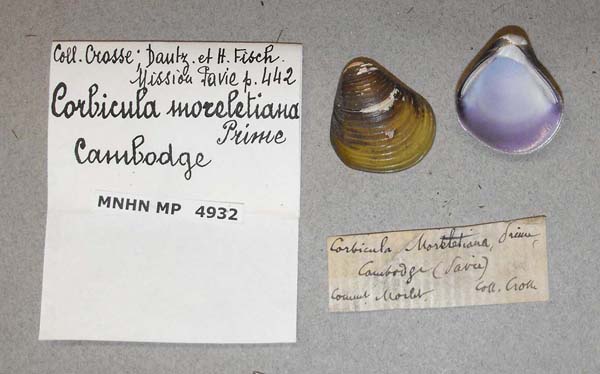 Coll. Crosse; Dautz. et H. Fisch.
Mission Pavie p. 442
Corbicula moreletiana
Prime
Cambodge
MNHN MP 4932
Corbicula Moreletiana, Prime,
Cambodge (Pavie)
Comm. Morlet. Coll. Crosse